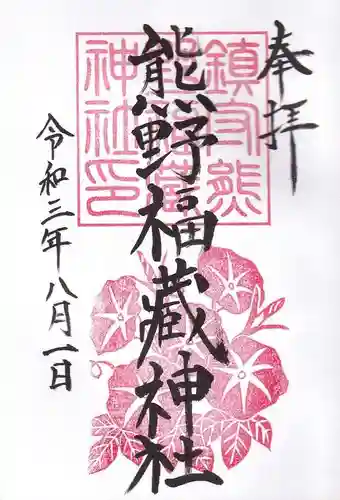 奉拝
熊野福藏神社
令和三年八月一日
鎮守熊
野福蔵
神社印